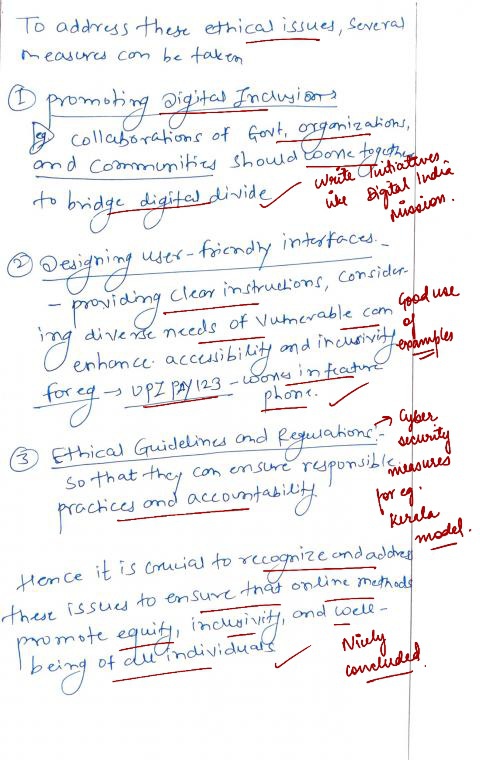 To address these ethical issues, several
measures can be taken
① promoting Digital Inclusion
eg collaborations of Govt, organizations,
and communities should work together
to bridge digital divide
write initiatives
like Digital India
Mission.
② Designing user-friendly interfaces.-
- providing clear instructions, consider-
ing diverse needs of vulnerable can
enhance accessibility and inclusivity
for eg → UPI PAY123 - works in feature
phone.
Good use
of
examples
③ Ethical Guidelines and Regulations:-
so that they can ensure responsible
practices and accountability
→ Cyber
security
measures
for eg.
Kerala
model.
Hence it is crucial to recognize and address
these issues to ensure that online methods
promote equity, inclusivity, and well-
being of all individuals
Nicely
concluded.